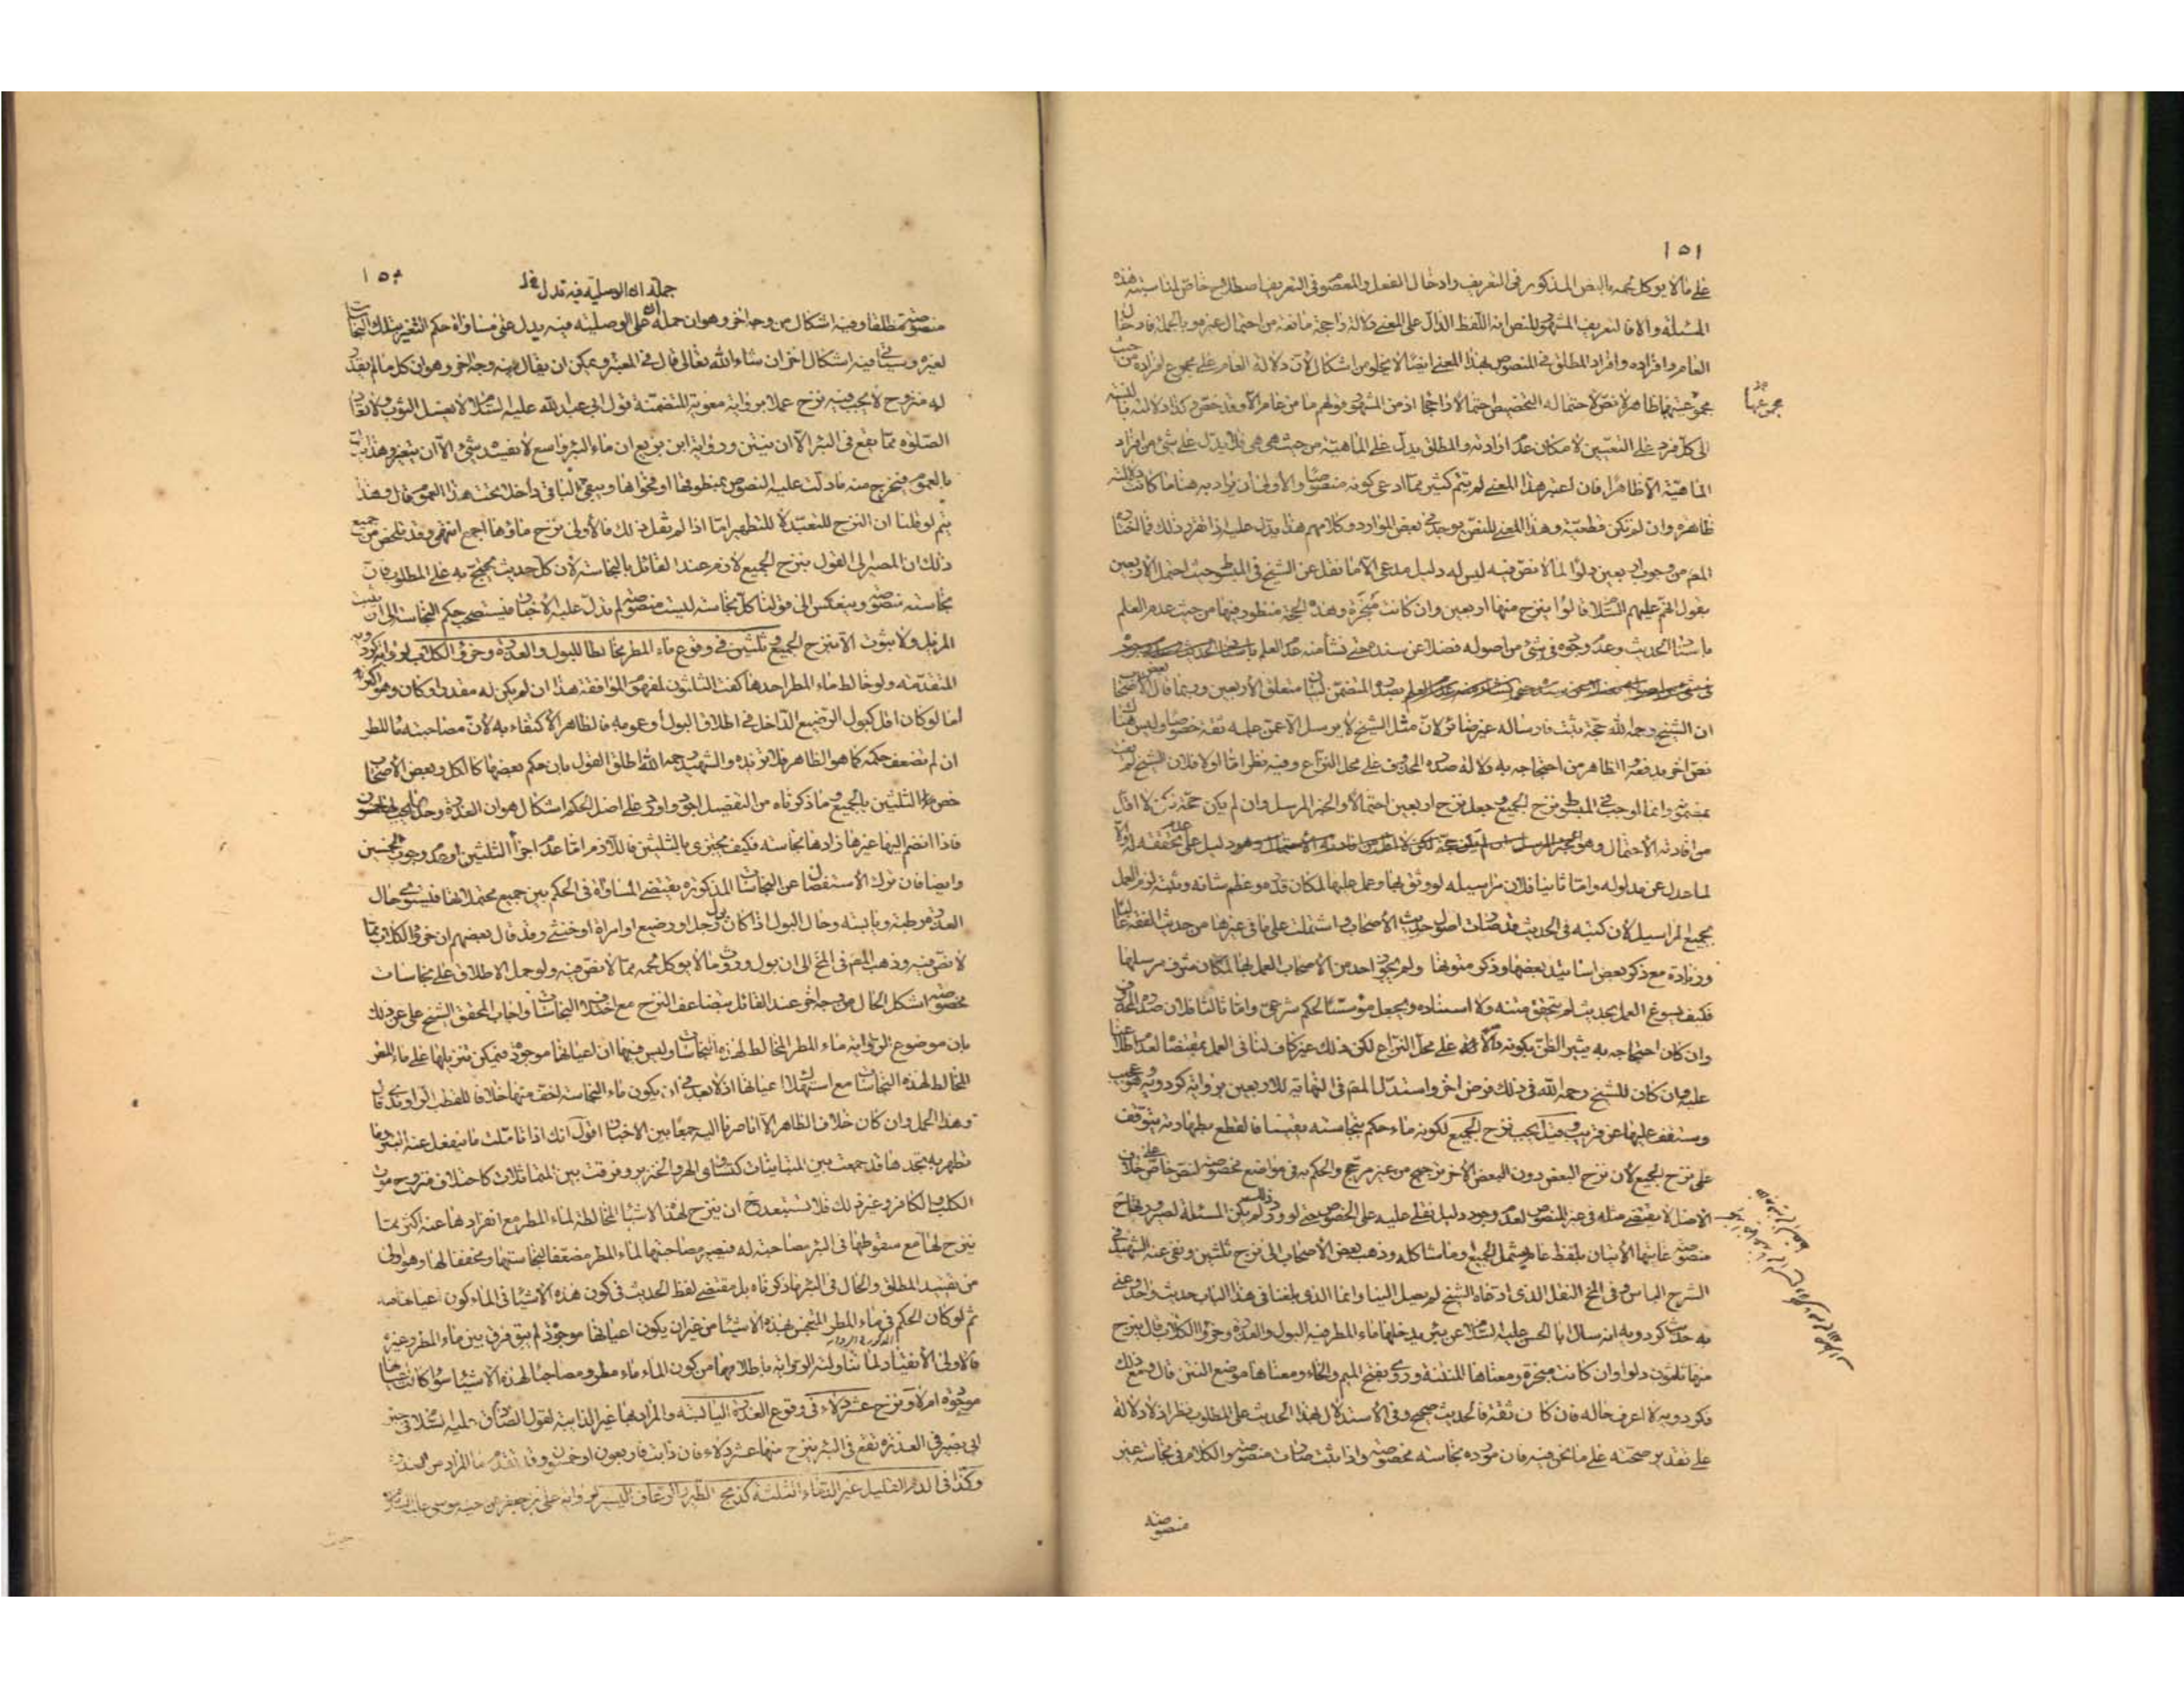 ١٥١
على ما لا يؤكل لحمه بالنص المذكور في التعريف وادخال الفعل والمعصوم في التعريف اصطلاح خاص لمناسبته هذه
المسئلة والا فالتعريف المشهور للنص انه اللفظ الدال على المعنى دلالة راجحة مانعة من احتمال غيره وبالجملة فادخال
العام وافراده وافراد المطلق في المنصوص بهذا المعنى ايضا لا يخلو من اشكال لان دلالة العام على مجموع افراده من حيث
مجموعها
مجموعيتها ظاهرة لا نص لاحتماله التخصيص احتمالا راجحا اذ من المشهور قولهم ما من عام الا وقد خص وكذا دلالته بالنسبة
الى كل فرد على التعيين لامكان عدم ارادته والمطلق يدل على الماهية من حيث هي هي فلا يدل على شئ من افراد
الماهية الا ظاهرا فان اعتبر هذا المعنى لم يتم كثير مما ادعى كونه منصوصا والاولى ان يراد به هنا ما كانت دلالته
ظاهرة وان لم تكن قطعية وهذا المعنى للنص يوجد في بعض الموارد وكلامهم هذا يدل عليه اذا تقرر ذلك فما اختاره
المص من وجوب اربعين دلوا لما لا نص فيه ليس له دليل مدعى الا ما نقل عن الشيخ في المبسوط حيث احتمل الاربعين
بقولهم عليهم السلام قالوا ينزح منها اربعين وان كانت مبخرة وهذه الحجة منظور فيها من حيث عدم العلم
باسناد الحديث وعدم وجوده في شئ من اصوله فضلا عن سنده حتى نشأ منه عدم العلم
بصدر المتضمن لبيان متعلق الاربعين وربما قال بعض الاصحاب
ان الشيخ رحمه الله حجة ثبت فارساله غير ضائر لان مثل الشيخ لا يرسل الا عمن علمه ثقة خصوصا وليس هناك
نص اخر يدفعه والظاهر من احتجاجه به دلالة صدر الحديث على محل النزاع وفيه نظر اما اولا فلان الشيخ لم يفت
بمضمونه وانما اوجب في المبسوط نزح الجميع وجعل نزح اربعين احتمالا والخبر المرسل وان لم يكن حجة لكن لا اقل
من افادته الاحتمال وهو دليل على عدم تحققه له والا
لما عدل عن مدلوله واما ثانيا فلان مراسيله لو وثق بها وعمل عليها لمكان قدمه وعظم شانه وثقته لزم العمل
بجميع المراسيل لان كتبه في الحديث قد ضاهت اصول حديث الاصحاب واشتملت على ما في غيرها من حديث الفقه غالبا
وزيادة مع ذكر بعض اسانيد بعضها وذكر متونها ولم يجوز احد من الاصحاب العمل بها لمكان متون مرسلها
فكيف يسوغ العمل بحديث لم يتحقق متنه ولا اسناده ويجعل مؤسسا لحكم شرعي واما ثالثا فلان صدر الحديث
وان كان احتجاجه به يثير الظن بكونه دالا على محل النزاع لكن ذلك غير كاف لنا في العمل بمقتضاه لعدم اطلاعنا
عليه وان كان للشيخ رحمه الله في ذلك فرض اخر واستدل المص في النهاية للاربعين برواية كردويه وهو عجيب
وستقف عليها عن قريب وقيل يجب نزح الجميع لكونه ماء حكم بنجاسته يقينا فالقطع بطهارته يتوقف
على نزح الجميع لان نزح البعض دون البعض الاخر ترجيح من غير مرجح والحكم به في مواضع مخصوصة لنص خاص على خلاف
الاصل لا يقتضي مثله في غير المنصوص لعدم وجود دليل نقلي عليه على الخصوص حتى لو ورد ذلك لم يكن المسئلة لصيرورتها ح
منصوصة غايتها الاتيان بلفظ عام يشمل الجميع وما شاكله وذهب بعض الاصحاب الى نزح ثلثين ونفى عنه الشهيد في
الشرح الباس وفي المخ النقل الذي ادعاه الشيخ لم يصل الينا وانما الذي بلغنا في هذا الباب حديث واحد وعنى
به حديث كردويه انه سال ابا الحسن عليه السلام عن بئر يدخلها ماء المطر فيه البول والعذرة وخرؤ الكلاب قال ينزح
منها ثلثون دلوا وان كانت مبخرة ومعناها المنتنة وروي بفتح الميم والخاء ومعناها موضع النتن قال ومع ذلك
فكردويه لا اعرف حاله فان كان ثقة فالحديث صحيح وفي الاستدلال بهذا الحديث على المطلوب نظر اذ لا دلالة
على تقدير صحته على ما نحن فيه فان مورده نجاسته مخصوصة واذا ثبت صارت منصوصة والكلام في نجاسة غير
منصوصة
جملة ان الوصلية فيه تدل
منصوصة مطلقا وفيه اشكال من وجه اخر وهو ان حمله ان على الوصلية فيه يدل على مساواة حكم التغير بتلك النجاسات
لغيره وسيأتي فيه اشكال اخر ان شاء الله تعالى قال في المعتبر ويمكن ان يقال فيه وجه اخر وهو ان كل ما لم يقدر
له منزوح لا يجب فيه نزح عملا برواية معوية المتضمنة قول ابي عبد الله عليه السلام لا يغسل الثوب ولا تعاد
الصلوة مما يقع في البئر الا ان ينتن ورواية ابن بزيع ان ماء البئر واسع لا يفسده شئ الا ان يتغير وهذا يدل
بالعموم فيخرج منه ما دلت عليه النصوص بمنطوقها او فحواها ويبقى الباقي داخلا تحت هذا العموم قال وهذا
يتم لو قلنا ان النزح للتعبد لا للتطهير اما اذا لم نقل ذلك فالاولى نزح ماؤها اجمع انتهى وقد تلخص من جميع
ذلك ان المصير الى القول بنزح الجميع لازم عند القائل بالنجاسة لان كل حديث يحتج به على المطلوب فان
نجاسته منصوصة وينعكس الى قولنا كل نجاسة ليست منصوصة لم يدل عليه الاخبار فيستصحب حكم النجاسة الى ان يثبت
المزيل ولا ثبوت الا بنزح الجميع وثلثين في وقوع ماء المطر مخالطا للبول والعذرة وخرؤ الكلاب لرواية كردويه
المتقدمة ولو خالط ماء المطر احدها كفت الثلثون لمفهوم الموافقة هذا ان لم يكن له مقدر او كان وهو اكثر
اما لو كان اقل كبول الرضيع الداخل في اطلاق البول او عمومه فالظاهر الاكتفاء به لان مصاحبته ماء المطر
ان لم تضعف حكمه كما هو الظاهر فلا تزيده والشهيد رحمه الله اطلق القول بان حكم بعضها كالكل وبعض الاصحاب
خص الثلثين بالجميع وما ذكرناه من التفصيل اجود واورد على اصل الحكم اشكال هو ان العذرة وحدها يجب لها خمسون
فاذا انضم اليها غيرها زادها نجاسة فكيف يجتزى بالثلثين فاللازم اما عدم اجزاء الثلثين او عدم وجوب الخمسين
وايضا فان ترك الاستفصال عن النجاسات المذكورة يقتضي المساواة في الحكم بين جميع محتملاتها فليستوي حال
العذرة رطبة ويابسة وحال البول اذا كان بول رجل او رضيع او امراة او خنثى وقد قال بعضهم ان خرؤ الكلاب مما
لا نص فيه وذهب المص في المخ الى ان بول وروث ما لا يؤكل لحمه مما لا نص فيه ولو حمل الاطلاق على نجاسات
مخصوصة اشكل الحال من وجه اخر عند القائل بتضاعف النزح مع اختلاف النجاسات واجاب المحقق الشيخ علي عن ذلك
بان موضوع الرواية ماء المطر المخالط لهذه النجاسات وليس فيها ان اعيانها موجودة فيمكن تنزيلها على ماء المطر
المخالط لهذه النجاسات مع استهلاك اعيانها اذ لا بعد في ان يكون ماء النجاسة اخف منها خلافا للقطب الراوندي قال
وهذا الحمل وان كان خلاف الظاهر الا انا صرنا اليه جمعا بين الاخبار اقول انك اذا تاملت ما ينفعل عنه البئر وما
تطهر به تجدها قد جمعت بين المتباينات كتساوي الهر والخنزير وفرقت بين المتماثلات كاختلاف منزوح موت
الكلب والكافر وغير ذلك فلا تستبعد ح ان ينزح لهذه الاشياء المخالطة لماء المطر مع انفرادها عنه اكثر مما
ينزح لها مع سقوطها في البئر مصاحبة له فتصير مصاحبتها لماء المطر مضعفا لنجاستها ومخففا لها وهو اولى
من تقييد المطلق والحال في البئر ما ذكرناه بل مقتضى لفظ الحديث في كون هذه الاشياء في الماء كون اعيانها فيه
ثم لو كان الحكم في ماء المطر المتنجس بهذه الاشياء من غير ان يكون اعيانها موجودة لم يبق فرق بين ماء المطر وغيره
فالاولى الانقياد لما تناولته الرواية باطلاقها من كون الماء ماء مطر ومصاحبا لهذه الاشياء سواء كانت عينها
موجودة ام لا ونزح عشر دلاء في وقوع العذرة اليابسة والمراد بها غير الذائبة لقول الصادق عليه السلام في خبر
ابي بصير في العذرة تقع في البئر ينزح منها عشر دلاء فان ذابت فاربعون او خمسون وقد تقدم ما المراد من العذرة
وكذا في الدم القليل غير الدماء الثلثة كذبح الطير والرعاف اليسير لرواية علي بن جعفر عن اخيه موسى عليه السلام